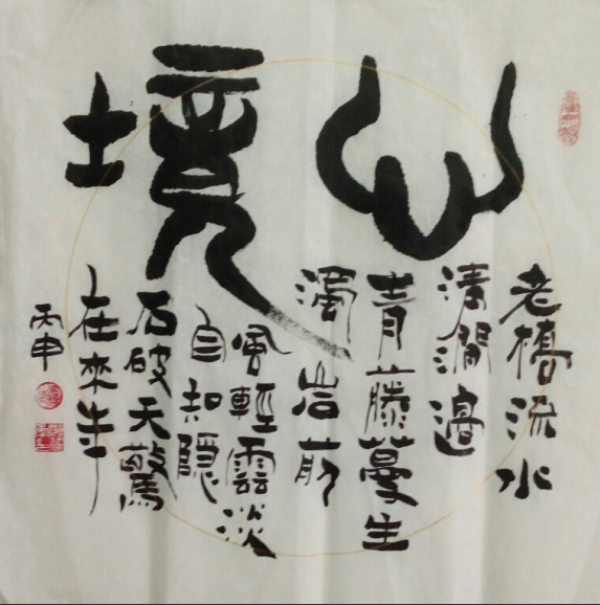 心境
老橋流水
清澗邊
青藤蔓生
濁岩前
風輕雲淡
自知隱
石破天驚
在來年
丙申